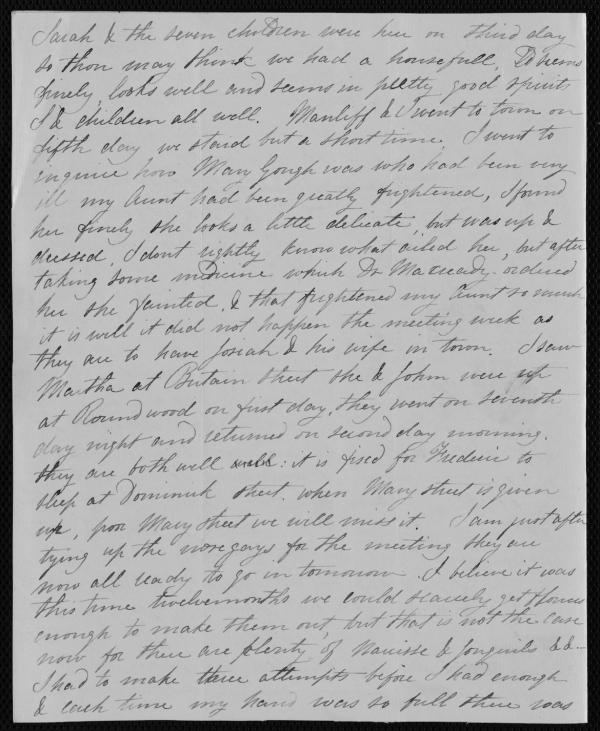 Sarah & the seven children were here on third day
so thou may think we had a housefull, D seems
finely looks well and seems in pretty good spirits
S & children all well. Manliff & I went to town on
fifth day we staid but a short time. I went to
inquire how Mary Gough was who had been very
ill my Aunt had been greatly frightened, I found
her finely she looks a little delicate, but was up &
dressed, I dont rightly know what ailed her, but after
taking some medicine which Dr ordered
her she fainted, & that frightened my Aunt so much
it is well it did not happen the meeting week as
they are to have Josiah & his wife in town. I saw
Martha at Britain street she & John were up
at Roundwood on first day, they went on seventh
day night and returned on second day morning.
they are both well : it is fixed for Frederic to
sleep at Dominick street. when Mary street is given
up, poor Mary street we will miss it. I am just after
tying up the nosegays for the meeting they are
now all ready to go in tomorrow. I believe it was
this time twelvemonths we could scarcely get flowers
enough to make them out, but that is not the case
now for there are plenty of Narcisse & Jonquils &c..
I had to make three attempts before I had enough
& each time my hand was so full there was